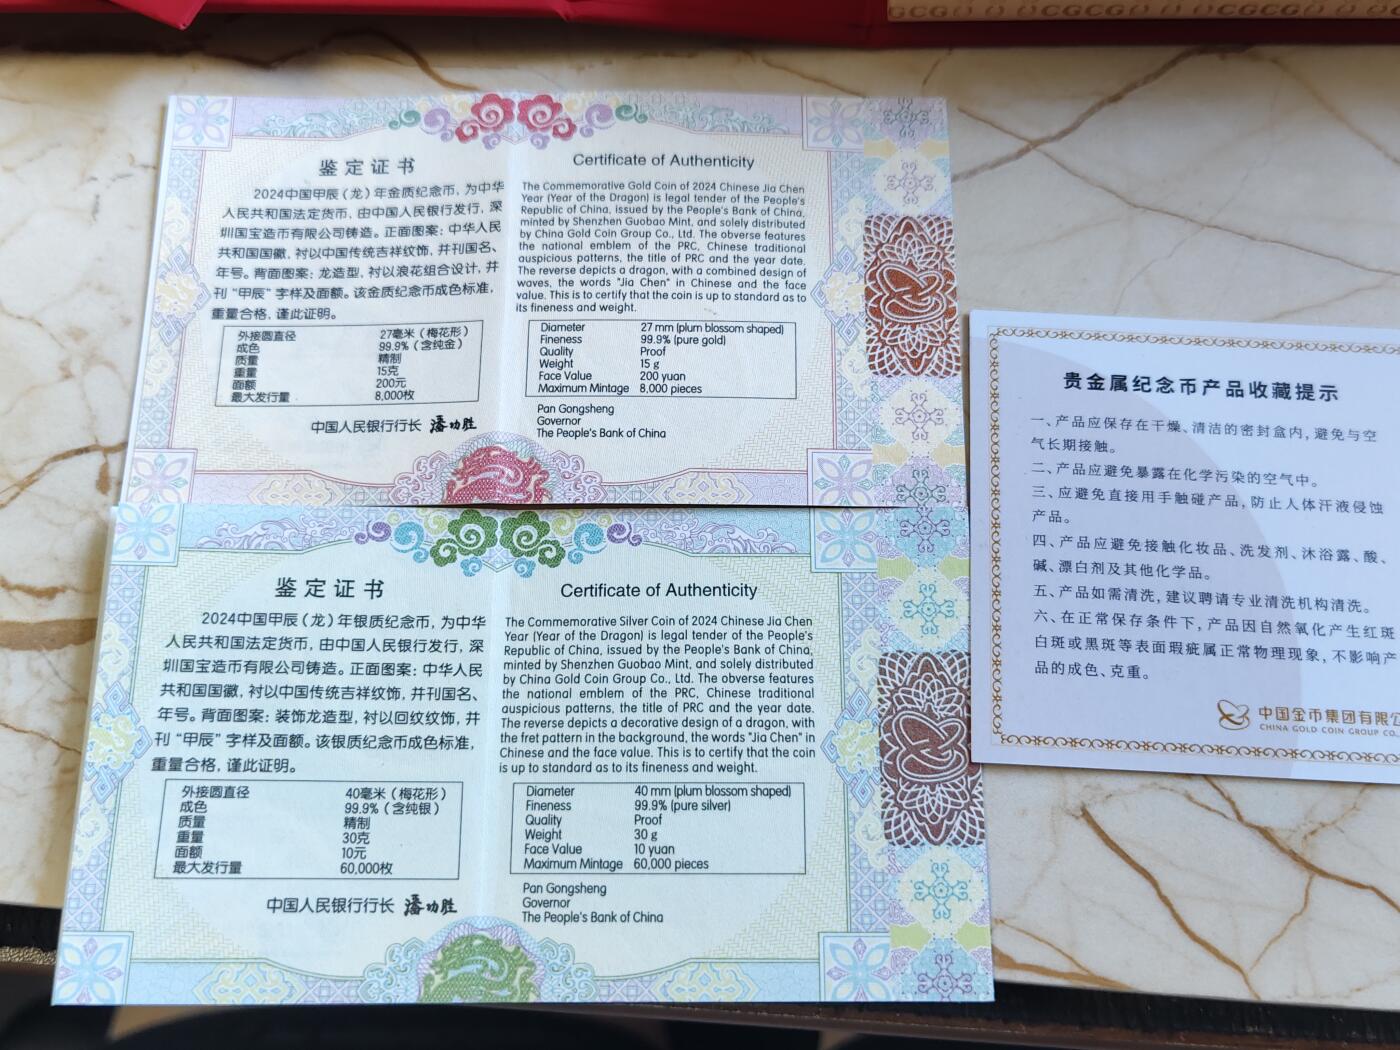 CGCG
CGCG
鉴定证书
2024中国甲辰（龙）年金质纪念币，为中华
人民共和国法定货币，由中国人民银行发行，深
圳国宝造币有限公司铸造。正面图案：中华人民
共和国国徽，衬以中国传统吉祥纹饰，并刊国名、
年号。背面图案：龙造型，衬以浪花组合设计，并
刊“甲辰”字样及面额。该金质纪念币成色标准，
重量合格，谨此证明。
外接圆直径 27毫米（梅花形）
成色 99.9%（含纯金）
质量 精制
重量 15克
面额 200元
最大发行量 8,000枚
中国人民银行行长 潘功胜
Certificate of Authenticity
The Commemorative Gold Coin of 2024 Chinese Jia Chen
Year (Year of the Dragon) is legal tender of the People's
Republic of China, issued by the People's Bank of China,
minted by Shenzhen Guobao Mint, and solely distributed
by China Gold Coin Group Co., Ltd. The obverse features
the national emblem of the PRC, Chinese traditional
auspicious patterns, the title of PRC and the year date.
The reverse depicts a dragon, with a combined design of
waves, the words "Jia Chen" in Chinese and the face
value. This is to certify that the coin is up to standard as to
its fineness and weight.
Diameter 27 mm (plum blossom shaped)
Fineness 99.9% (pure gold)
Quality Proof
Weight 15 g
Face Value 200 yuan
Maximum Mintage 8,000 pieces
Pan Gongsheng
Governor
The People's Bank of China
鉴定证书
2024中国甲辰（龙）年银质纪念币，为中华
人民共和国法定货币，由中国人民银行发行，深
圳国宝造币有限公司铸造。正面图案：中华人民
共和国国徽，衬以中国传统吉祥纹饰，并刊国名、
年号。背面图案：装饰龙造型，衬以回纹纹饰，并
刊“甲辰”字样及面额。该银质纪念币成色标准，
重量合格，谨此证明。
外接圆直径 40毫米（梅花形）
成色 99.9%（含纯银）
质量 精制
重量 30克
面额 10元
最大发行量 60,000枚
中国人民银行行长 潘功胜
Certificate of Authenticity
The Commemorative Silver Coin of 2024 Chinese Jia Chen
Year (Year of the Dragon) is legal tender of the People's
Republic of China, issued by the People's Bank of China,
minted by Shenzhen Guobao Mint, and solely distributed
by China Gold Coin Group Co., Ltd. The obverse features
the national emblem of the PRC, Chinese traditional
auspicious patterns, the title of PRC and the year date.
The reverse depicts a decorative design of a dragon, with
the fret pattern in the background, the words "Jia Chen" in
Chinese and the face value. This is to certify that the coin
is up to standard as to its fineness and weight.
Diameter 40 mm (plum blossom shaped)
Fineness 99.9% (pure silver)
Quality Proof
Weight 30 g
Face Value 10 yuan
Maximum Mintage 60,000 pieces
Pan Gongsheng
Governor
The People's Bank of China
贵金属纪念币产品收藏提示
一、产品应保存在干燥、清洁的密封盒内，避免与空
气长期接触。
二、产品应避免暴露在化学污染的空气中。
三、应避免直接用手触碰产品，防止人体汗液侵蚀
产品。
四、产品应避免接触化妆品、洗发剂、沐浴露、酸、
碱、漂白剂及其他化学品。
五、产品如需清洗，建议聘请专业清洗机构清洗。
六、在正常保存条件下，产品因自然氧化产生红斑
白斑或黑斑等表面瑕疵属正常物理现象，不影响产
品的成色、克重。
中国金币集团有限
CHINA GOLD COIN GROUP CO.,